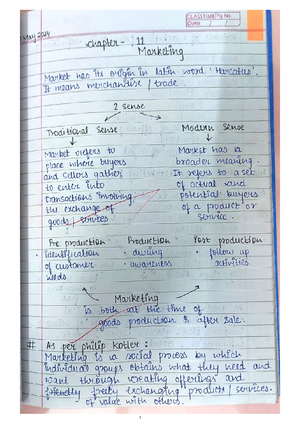 CLASSTIME Pg No.
Date / /
May 2024
Chapter - 11
Marketing
Market has its origin in latin word 'Marcatus'.
It means merchandise / trade.
2 Sense
Traditional Sense
Market refers to
place where buyers
and sellers gather
to enter into
transactions involving
the exchange of
goods / services
Modern Sense
Market has a
broader meaning.
It refers to a set
of actual and
potential buyers
of a product or
service.
Pre production Production Post production
· Identification · during · follow up
of customer · awareness activities
needs
Marketing
is both at the time of
goods production & after sale.
# As per philip Kotler :
Marketing is a social process by which
individual groups obtains what they need and
want through creating offerings and
friendly freely exchanging products / services.
of value with others.
1